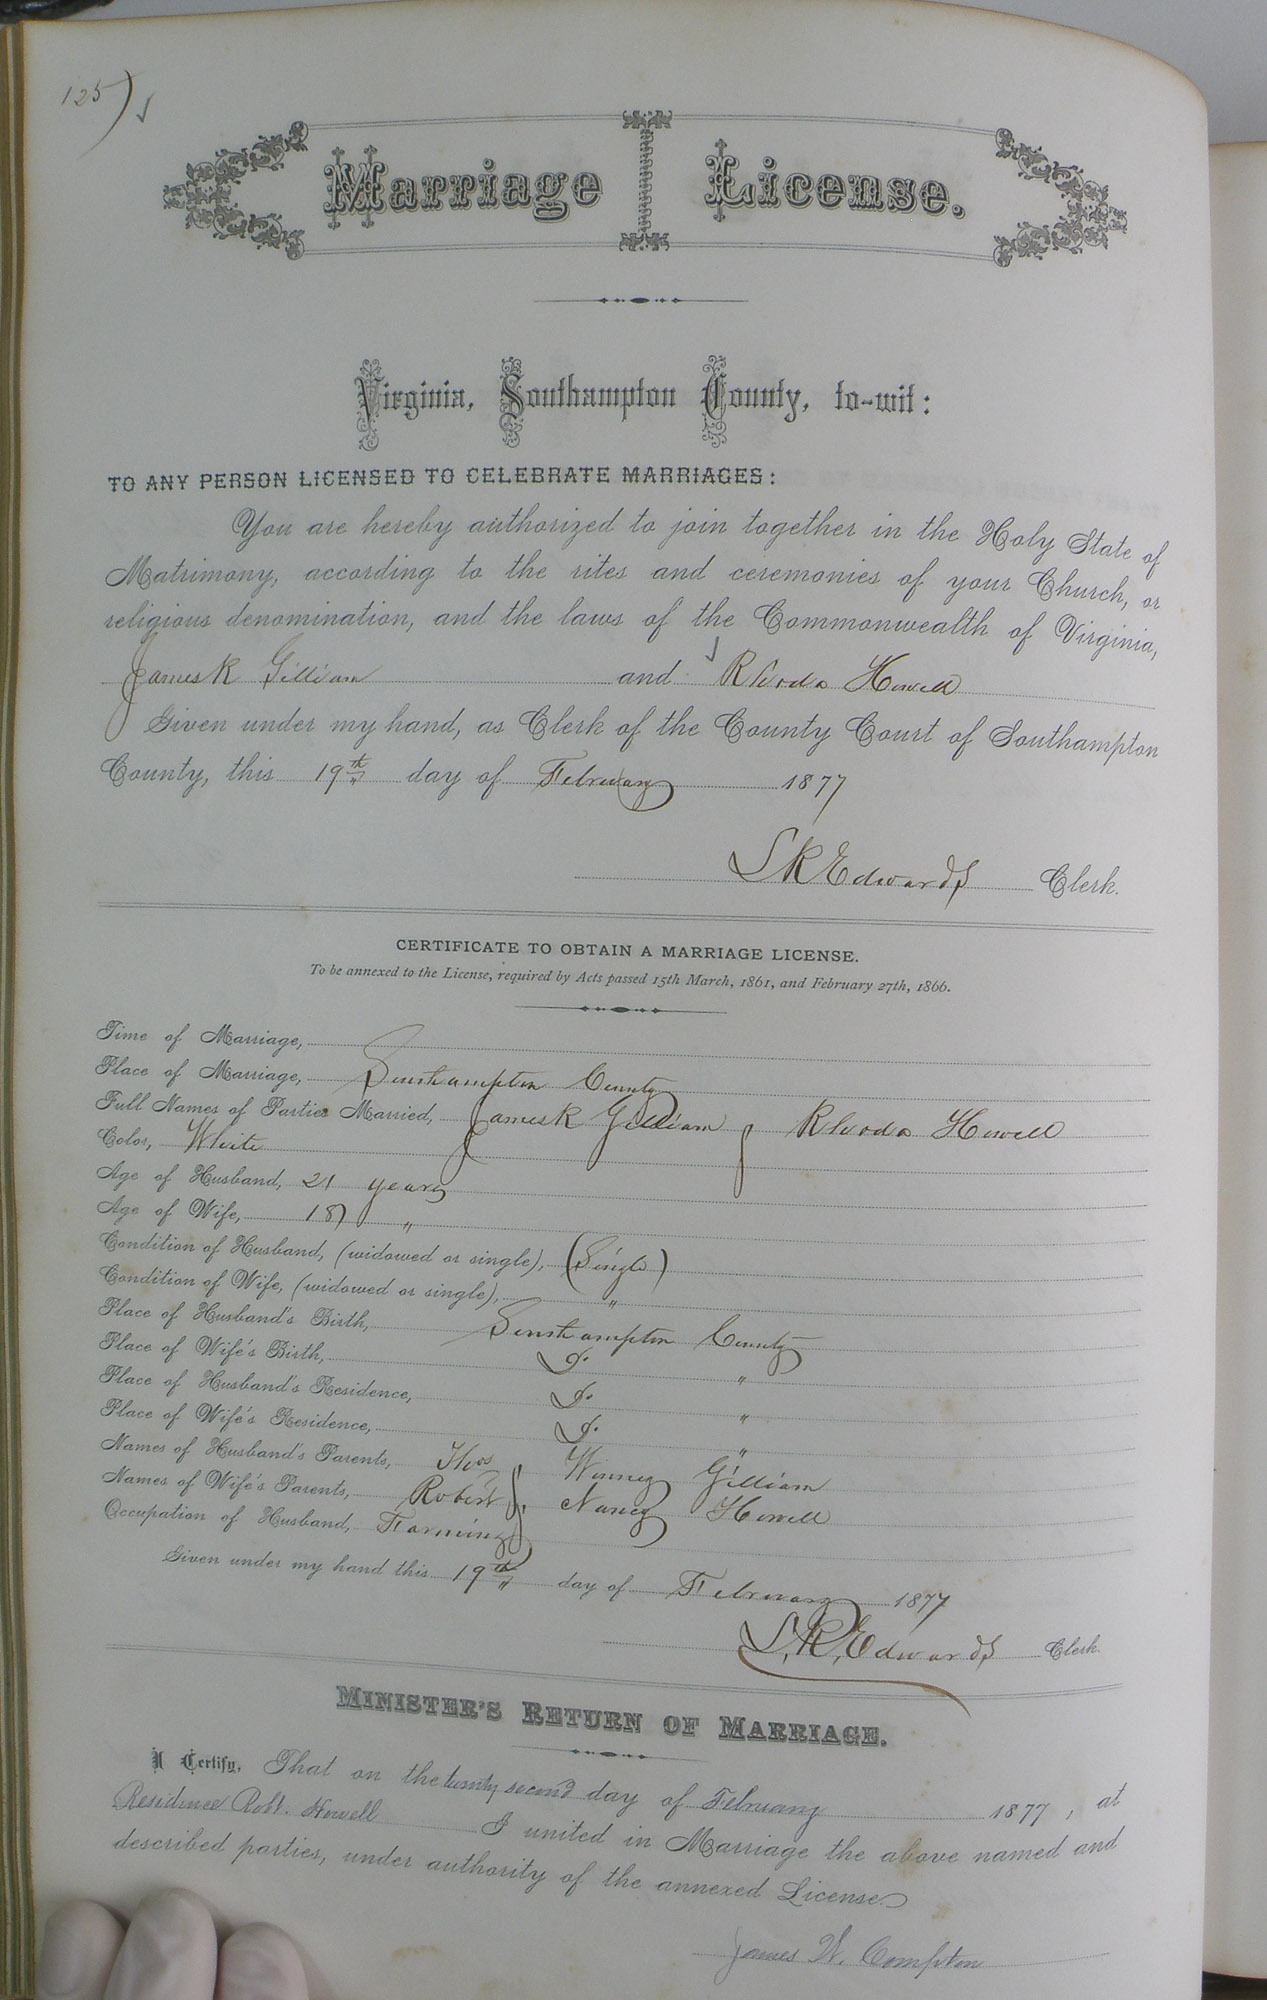 125)
Marriage License.
Virginia, Southampton County, to-wit:
TO ANY PERSON LICENSED TO CELEBRATE MARRIAGES:
You are hereby authorized to join together in the Holy State of
Matrimony, according to the rites and ceremonies of your Church, or
religious denomination, and the laws of the Commonwealth of Virginia,
James R Gilliam and Rhoda Howell
Given under my hand, as Clerk of the County Court of Southampton
County, this 19th day of February 1877
L R Edwards Clerk.
CERTIFICATE TO OBTAIN A MARRIAGE LICENSE.
To be annexed to the License, required by Acts passed 15th March, 1861, and February 27th, 1866.
Time of Marriage,
Place of Marriage, Southampton County
Full Names of Parties Married, James R Gilliam & Rhoda Howell
Color, White
Age of Husband, 21 years
Age of Wife, 18 "
Condition of Husband, (widowed or single), (Single)
Condition of Wife, (widowed or single), "
Place of Husband's Birth, Southampton County
Place of Wife's Birth, Do "
Place of Husband's Residence, Do "
Place of Wife's Residence, Do "
Names of Husband's Parents, Thos & Winney Gilliam
Names of Wife's Parents, Robert & Nancy Howell
Occupation of Husband, Farming
Given under my hand this 19th day of February 1877
L. R. Edwards Clerk.
MINISTER'S RETURN OF MARRIAGE.
I Certify, That on the twenty second day of February 1877, at
Residence Robt. Howell I united in Marriage the above named and
described parties, under authority of the annexed License.
James W. Compton